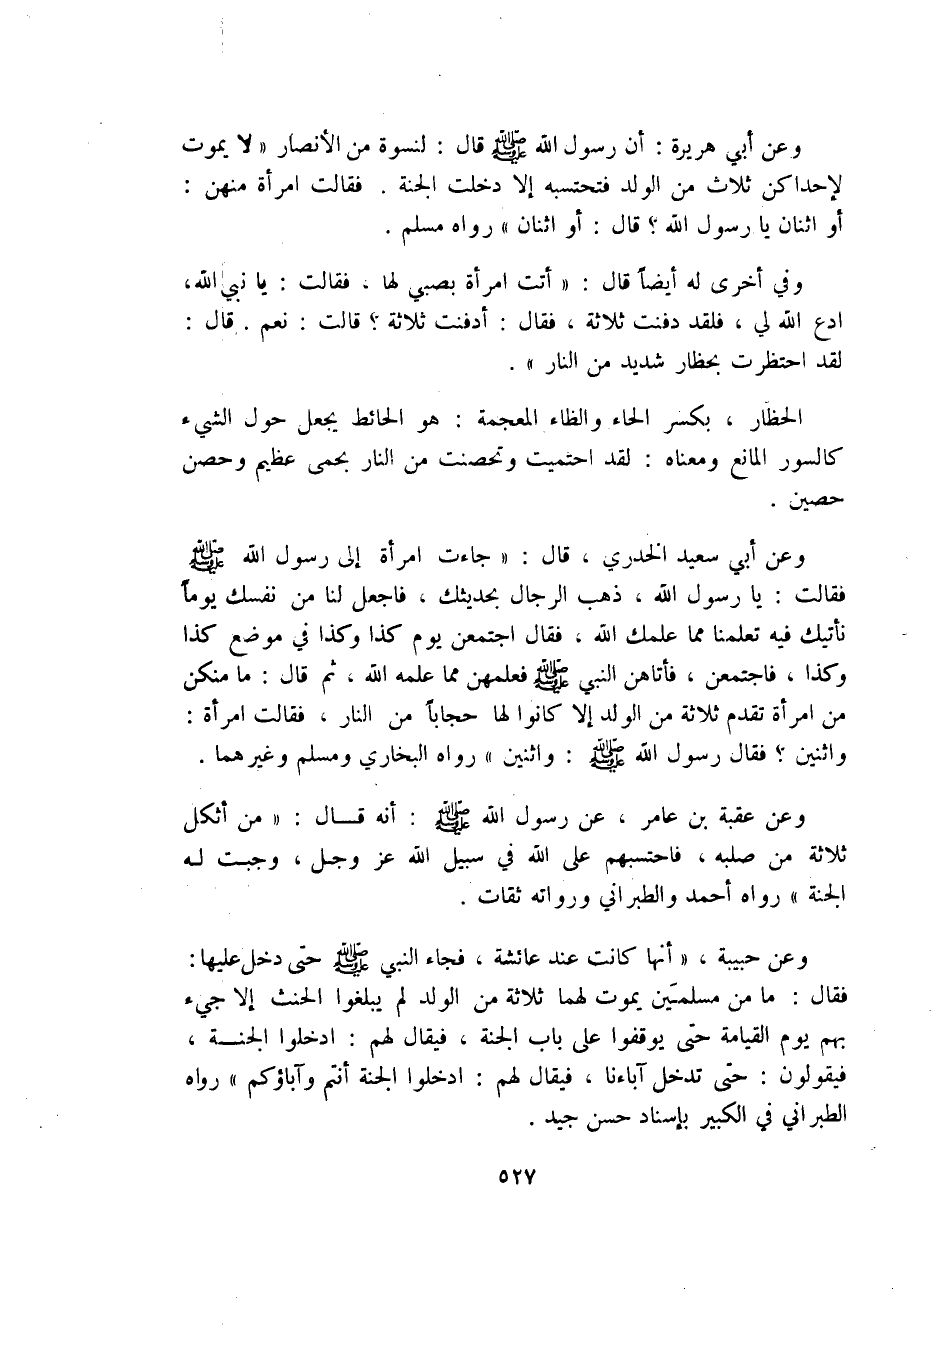 وعن أبي هريرة : أن رسول الله ﷺ قال : لنسوة من الأنصار « لا يموت
لإحداكن ثلاث من الولد فتحتسبه إلا دخلت الجنة . فقالت امرأة منهن :
أو اثنان يا رسول الله ؟ قال : أو اثنان » رواه مسلم .
وفي أخرى له أيضاً قال : « أتت امرأة بصبي لها ، فقالت : يا نبي الله،
ادع الله لي ، فلقد دفنت ثلاثة ، فقال : أدفنت ثلاثة ؟ قالت : نعم . قال :
لقد احتظرت بحظار شديد من النار » .
الحظار ، بكسر الحاء والظاء المعجمة : هو الحائط يجعل حول الشيء
كالسور المانع ومعناه : لقد احتميت وتحصنت من النار بحمى عظيم وحصن
حصين .
وعن أبي سعيد الخدري ، قال : « جاءت امرأة إلى رسول الله ﷺ
فقالت : يا رسول الله ، ذهب الرجال بحديثك ، فاجعل لنا من نفسك يوماً
نأتيك فيه تعلمنا مما علمك الله ، فقال اجتمعن يوم كذا وكذا في موضع كذا
وكذا ، فاجتمعن ، فأتاهن النبي ﷺ فعلمهن مما علمه الله ، ثم قال : ما منكن
من امرأة تقدم ثلاثة من الولد إلا كانوا لها حجاباً من النار ، فقالت امرأة :
واثنين ؟ فقال رسول الله ﷺ : واثنين » رواه البخاري ومسلم وغيرهما .
وعن عقبة بن عامر ، عن رسول الله ﷺ : أنه قـــال : « من أثكل
ثلاثة من صلبه ، فاحتسبهم على الله في سبيل الله عز وجل ، وجبت لـه
الجنة » رواه أحمد والطبراني ورواته ثقات .
وعن حبيبة ، « أنها كانت عند عائشة ، فجاء النبي ﷺ حتى دخل عليها :
فقال : ما من مسلمَين يموت لهما ثلاثة من الولد لم يبلغوا الحنث إلا جيء
بهم يوم القيامة حتى يوقفوا على باب الجنة ، فيقال لهم : ادخلوا الجنـــة ،
فيقولون : حتى تدخل آباءنا ، فيقال لهم : ادخلوا الجنة أنتم وآباؤكم » رواه
الطبراني في الكبير بإسناد حسن جيد .
٥٢٧